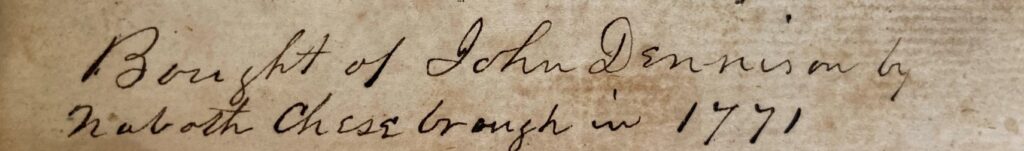 Bought of John Dennison by
Naboth Chesebrough in 1771